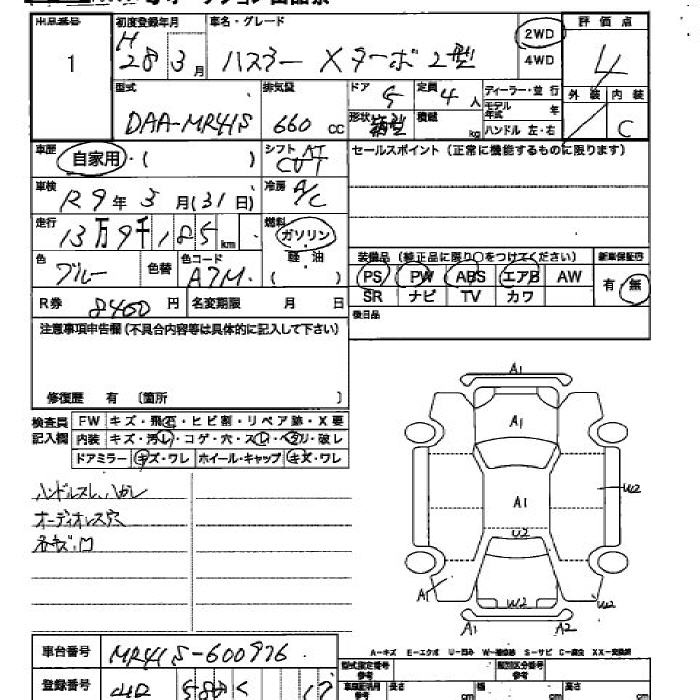 出品番号 初度登録年月 車名・グレード 2WD 評価点
1 H 28 3月 ハスラー Xターボ 2型 4WD 4
型式 排気量 ドア 5 定員 4人 ディーラー・並行 外装 内装
DAA-MR41S 660cc 形状 積載 kg モデル年式 年 ハンドル 左・右 C
車歴 自家用・( ) シフト AT CVT セールスポイント(正常に機能するものに限ります)
車検 R9年3月(31日) 冷房 A/C
走行 13万9千185km 燃料 ガソリン
色 ブルー 色替 色コード A7M 軽・油 ( 装備品(純正品に限り○をつけてください) 新車保証書
PS PW ABS エアB AW 有・無
R券 8460円 名変期限 月 日 SR ナビ TV カワ
注意事項申告欄(不具合内容等は具体的に記入して下さい) 後日品
修復歴 有 〔箇所 〕
検査員 FW キズ・飛石・ヒビ割・リペア跡・X要
記入欄 内装 キズ・汚レ・コゲ・穴・スレ・ヘタリ・破レ
ドアミラー キズ・ワレ ホイール・キャップ キズ・ワレ
ハンドルスレ、ハガレ
オーディオレス穴
A1
A1
A1 W2
U2
A1 W2 W2
A1 A2
A-キズ E-エクボ U-凹み W-補修跡 S-サビ C-腐食 XX-交換済
車台番号 MR41S-600976
型式指定番号 類別区分番号
登録番号 長さ cm 幅 cm 高さ cm